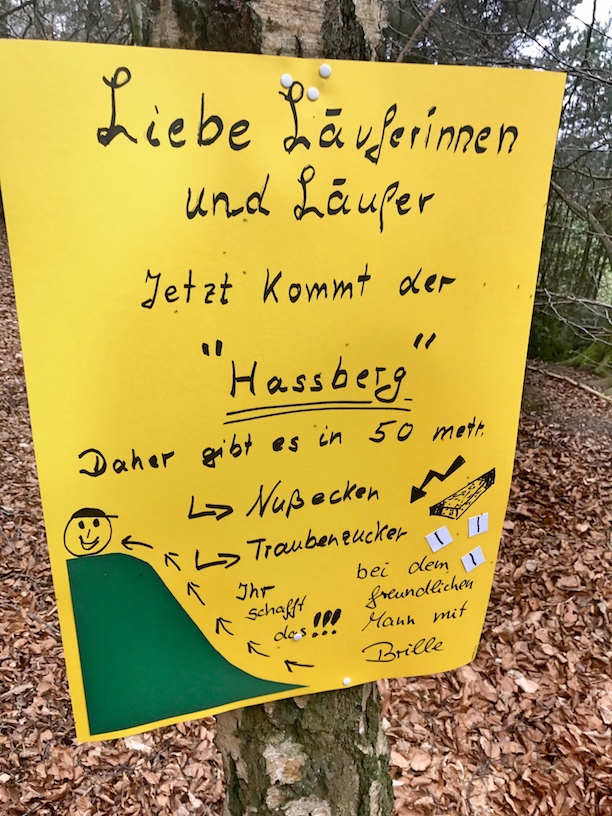 Liebe Läuferinnen
und Läufer
Jetzt kommt der
"Hassberg"
Daher gibt es in 50 metr.
↳ Nußecken
↳ Traubenzucker
bei dem
freundlichen
Mann mit
Brille
Ihr
schafft
das!!!